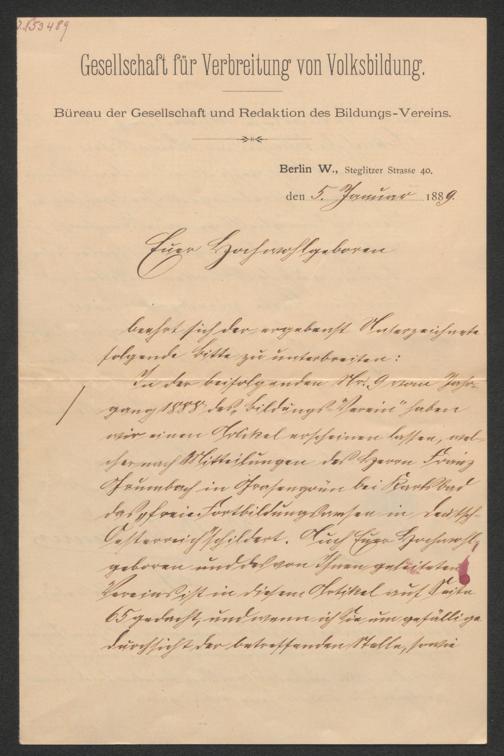 I.N. 53489
Gesellschaft für Verbreitung von Volksbildung.
Büreau der Gesellschaft und Redaktion des Bildungs-Vereins.
Berlin W., Steglitzer Strasse 40.
den 5. Januar 1889.
Euer Hochwohlgeboren
beehrt sich der ergebenst Unterzeichnete
folgende Bitte zu unterbreiten:
In der beifolgenden Nr. 9 vom Jahr-
gang 1888 des „Bildungs-Verein" haben
wir einen Artikel erscheinen lassen, wel-
cher nach Mitteilungen des Herrn Franz
in bei Karlsbad
das freie Fortbildungswesen in Deutsch-
Oesterreich schildert. Auch Euer Hochwohl-
geboren und des von Ihnen geleiteten
Vereins ist in diesem Artikel auf Seite
65 gedacht, und wenn ich Sie um gefällige
Durchsicht der betreffenden Stelle, sowie